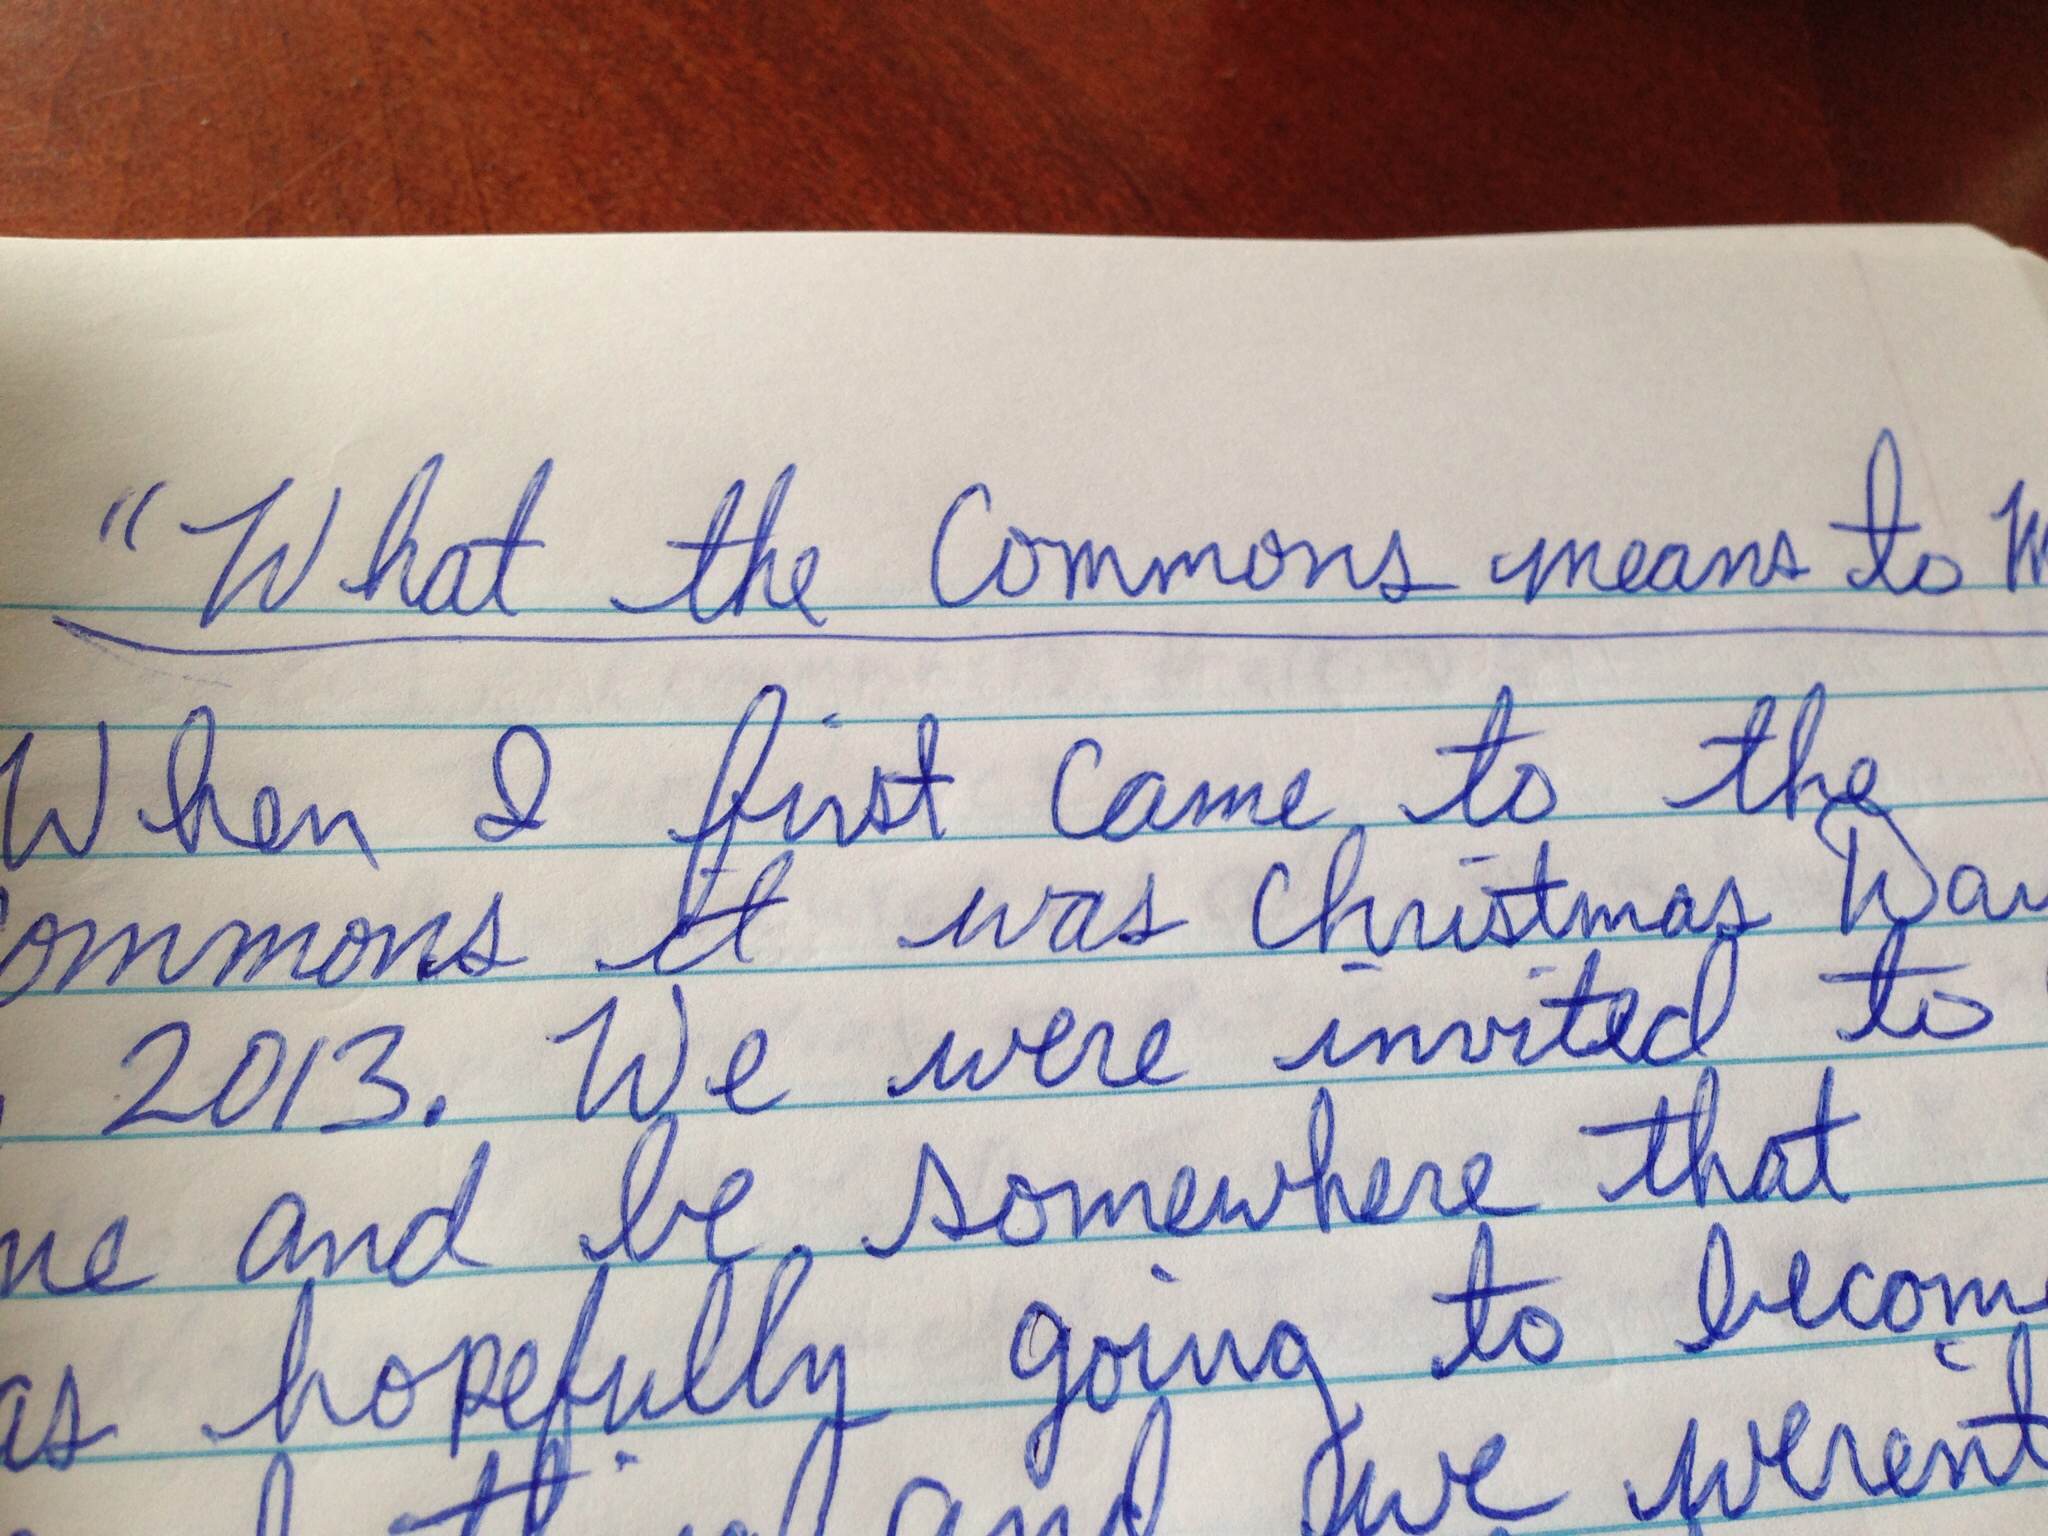 "What the Commons means to M
When I first came to the
Commons it was Christmas Day
, 2013. We were invited to
me and be somewhere that
as hopefully going to become
and we weren't